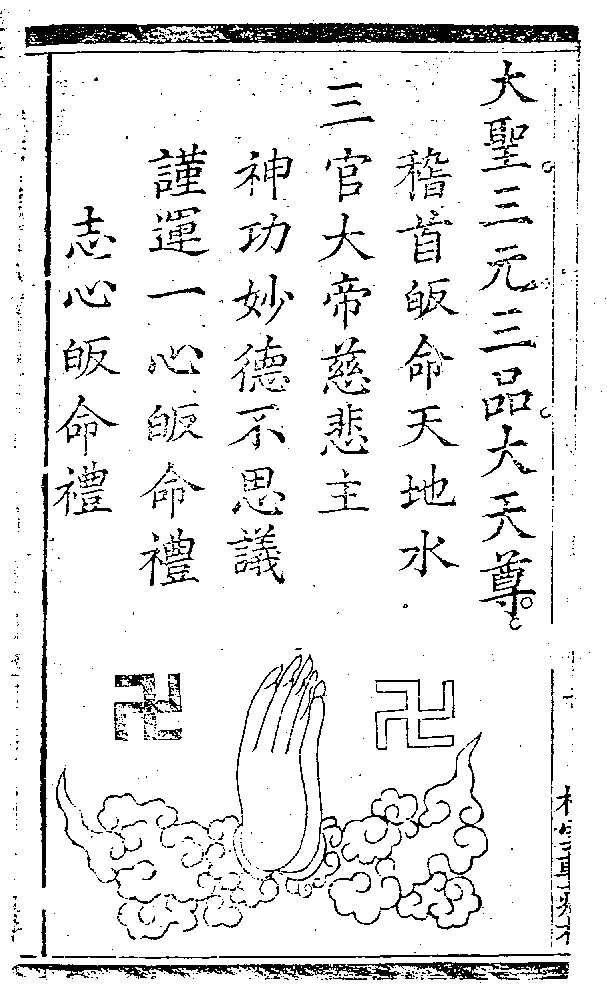 大聖三元三品大天尊
稽首皈命天地水
三官大帝慈悲主
神功妙德不思議
謹運一心皈命禮
志心皈命禮